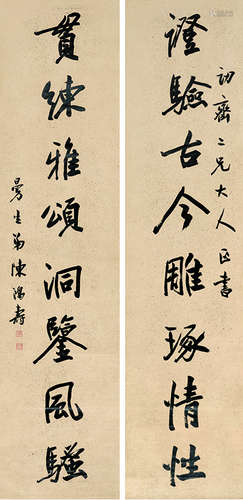 證驗古今雕琢情性
齋二兄大人正書
貫練雅頌洞鑒風騷
曼生弟陳鴻壽